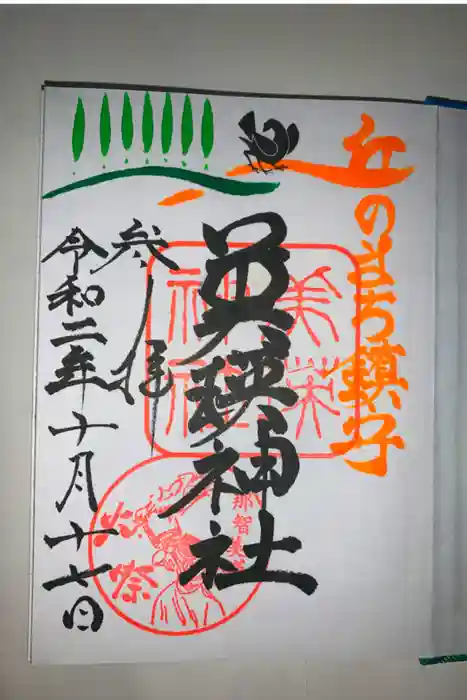 丘のまち鎮守
美瑛神社
参拝
令和二年十月十七日
美瑛神社
那智美
火祭